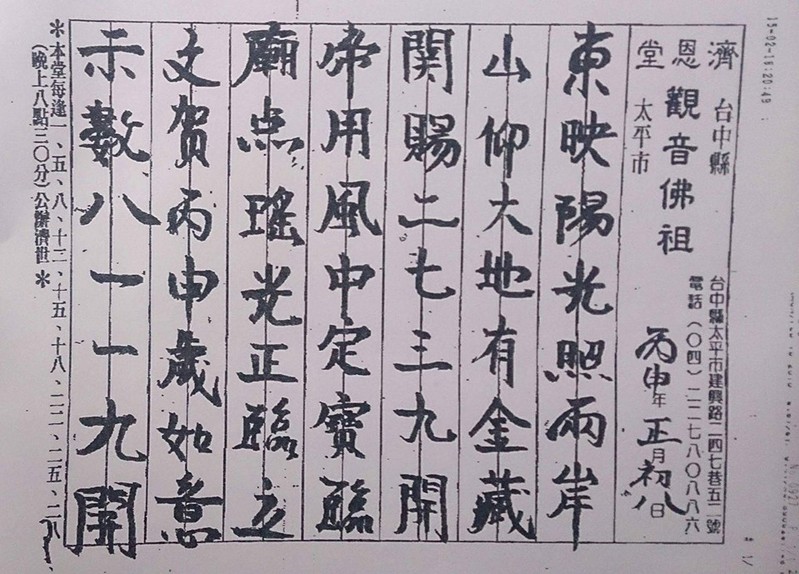 濟恩堂
台中縣
太平市
觀音佛祖
台中縣太平市建興路二四七巷五二號
電話(〇四)二二七八〇八八六
丙申年正月初八日
東映陽光照兩岸
山仰大地有金藏
関賜二七三九開
帝用風中定寶臨
廟点瑤光正臨之
文賀丙申歲如意
示數八一一九開
*本堂每逢一、五、八、十二、十五、十八、二二、二五、二八、
(晚上八點三〇分)公辦濟世*